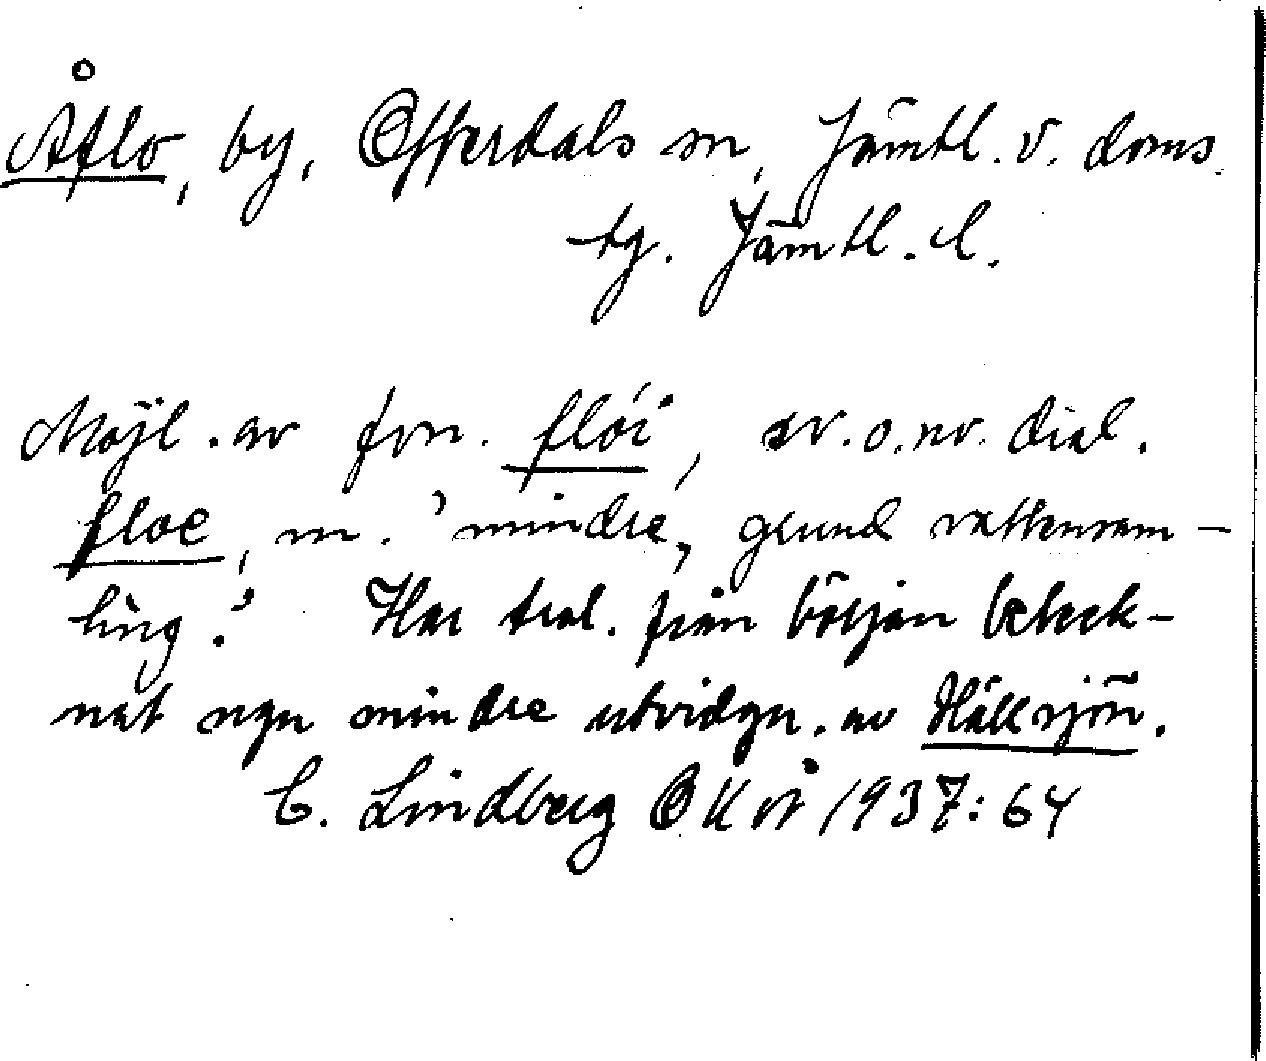 Åflo, by, Offerdals sn, Jämtl. v. doms.
tg. Jämtl. l.
Möjl. av fvn. flói, sv. o. nv. dial.
floe, m. 'mindre, grund vattensam-
ling.' Har trol. från början beteck-
nat ngn mindre utvidgn. av Hällsjön.
C. Lindberg 1937:64